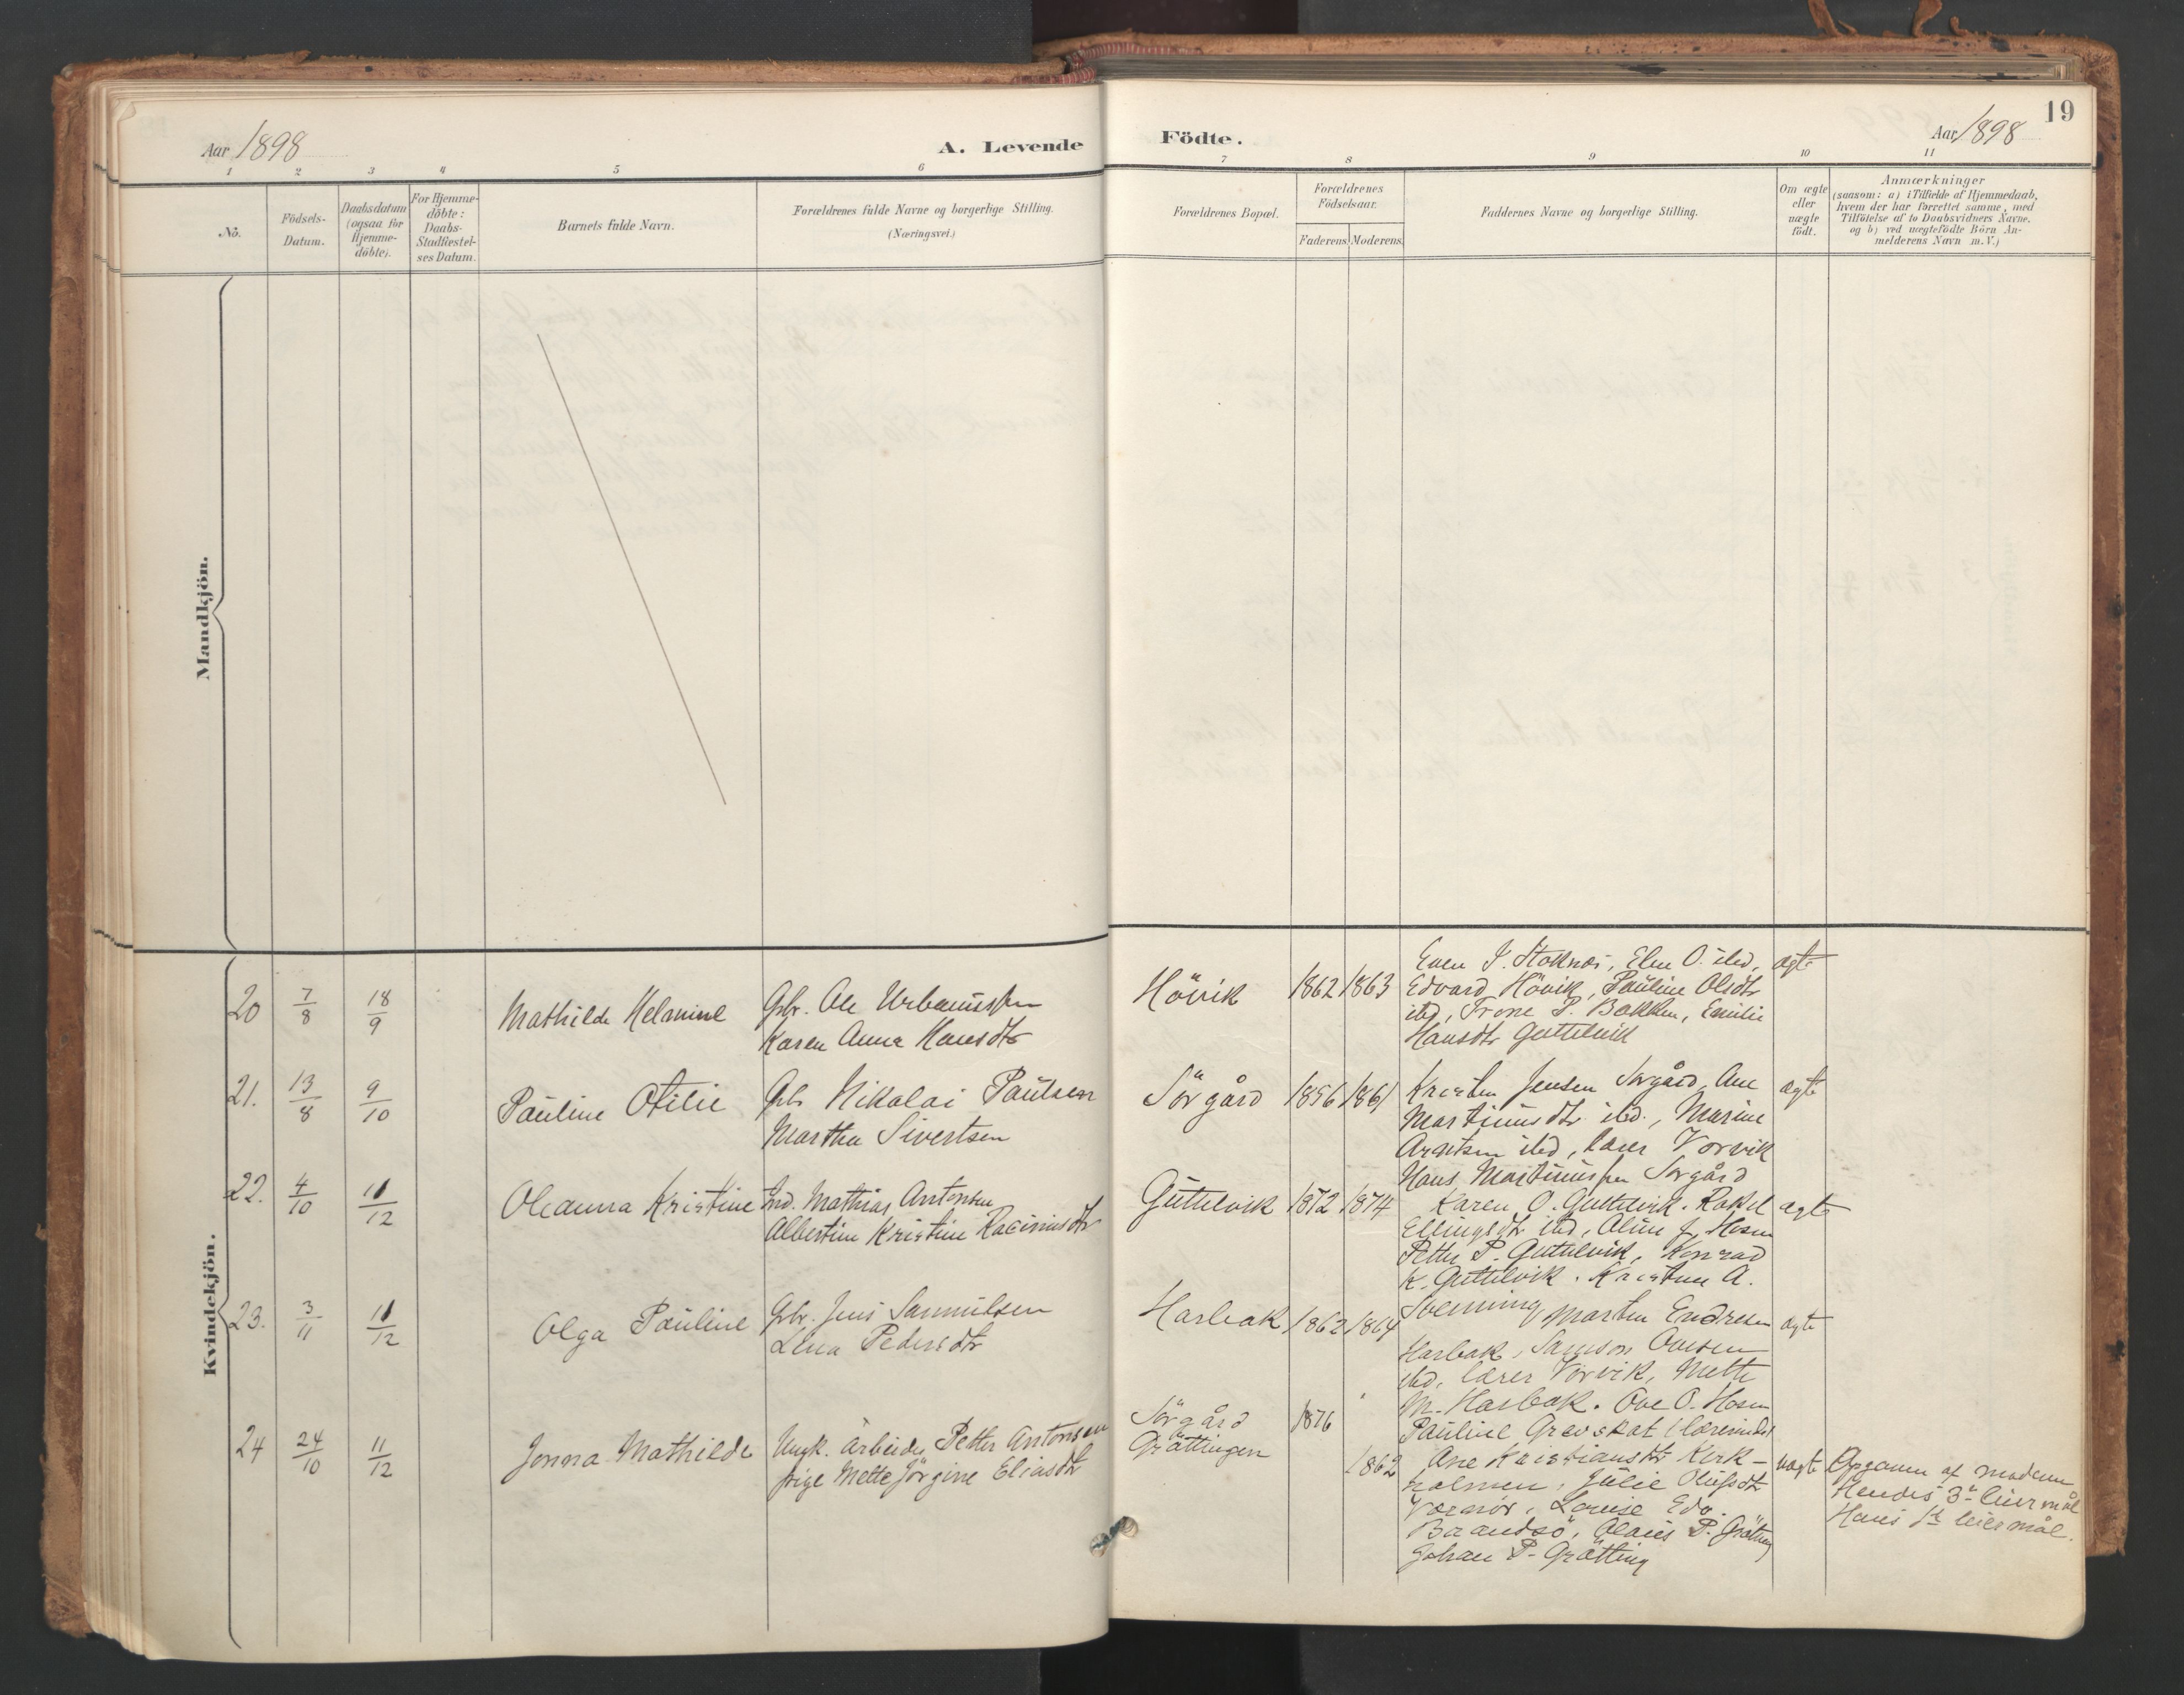 19
Aar 1898
A. Levende
Födte.
Aar 1898
1 2 3 4 5 6 7 8 9 10 11
No.
Födsels-
Datum.
Daabsdatum
(ogsaa for
Hjemme-
döbte).
For Hjemme-
döbte:
Daabs-
Stadfæstel-
ses Datum.
Barnets fulde Navn.
Forældrenes fulde Navne og borgerlige Stilling.
(Næringsvei.)
Forældrenes Bopæl.
Forældrenes
Födselsaar.
Faderens. Moderens.
Faddernes Navne og borgerlige Stilling.
Om ægte
eller
uægte
födt.
Anmærkninger
(saasom: a) i Tilfælde af Hjemmedaab,
hvem der har forrettet samme, med
Tilföielse af to Daabsvidners Navne.
og b) ved uægtefödte Börn An-
melderens Navn m.V.)
Mandkjön.
Kvindekjön.
20 7/8 18/9 Mathilde Helmine
Gbr. Ole Urbanussen
Karen Anna Hansdtr
Hövik 1862 1863
Even J. Stoknes, Elen O. ibd,
Edvard Hövik, Pauline Olsdtr
ibd, Trone P. Bakken, Emilie
Hansdtr Guttelvik
ægte
21. 13/8 9/10 Pauline Otilie
Gbr Nikolai Paulsen
Martha Sivertsen
Sörgård 1856 1861
Kristen Jensen Sörgård, Ane
Martinusdtr ibd., Marine
Arntsen ibd, lærer Vorvik
Hans Martinussen Sörgård
ægte
22. 4/10 11/12 Oleanna Kristine
Ind. Mathias Antonsen
Albertine Kristine Racinusdtr
Guttelvik 1872 1874
Karen O. Guttelvik. Rakel
Ellingsdtr ibd, Aline J. Hosen
Petter P. Guttelvik, Konrad
K. Guttelvik. Kristine A.
Svenning
ægte
23. 3/11 11/12 Olga Pauline
Gbr. Jens Samuelsen
Lena Pedersdtr
Harbak 1862 1864
Martin Endresen
Harbak, Samson Ovesen
ibd, lærer Vorvik, Mette
M. Harbak. Ove O. Hosen
Pauline Grevskat (lærerinde)
ægte
24 24/10 11/12 Jonna Mathilde
Ungk. Arbeider Petter Antonsen
pige Mette Jörgine Eliasdtr
Sörgård
Grättingen
1876
1862
Ane Kristiansdtr Kirk-
holmen, Julie Olufsdtr
Lovise Edv.
Brandsö, Olaus P. Grätting
Johan P. Grätting
uægte
Opgaven af moderen
Hendes 3die leiermål
Hans 1ste leiermål.